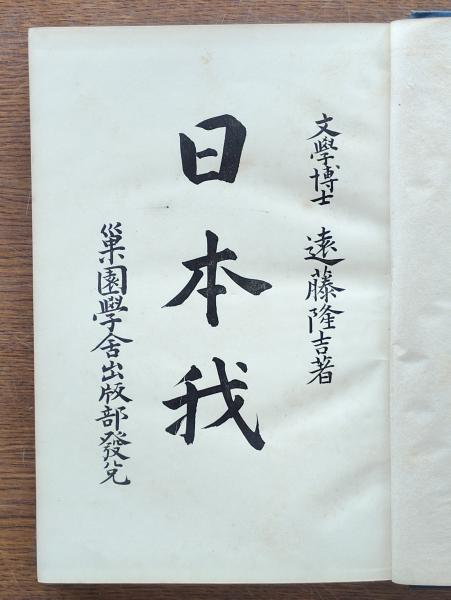 文學博士 遠藤隆吉著
日本我
巢園學舍出版部發兌